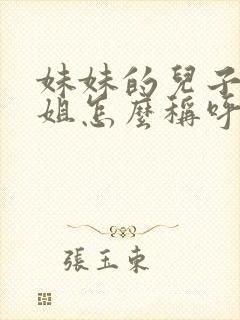 妹妹的兒子
姐怎麼稱呼
張玉東